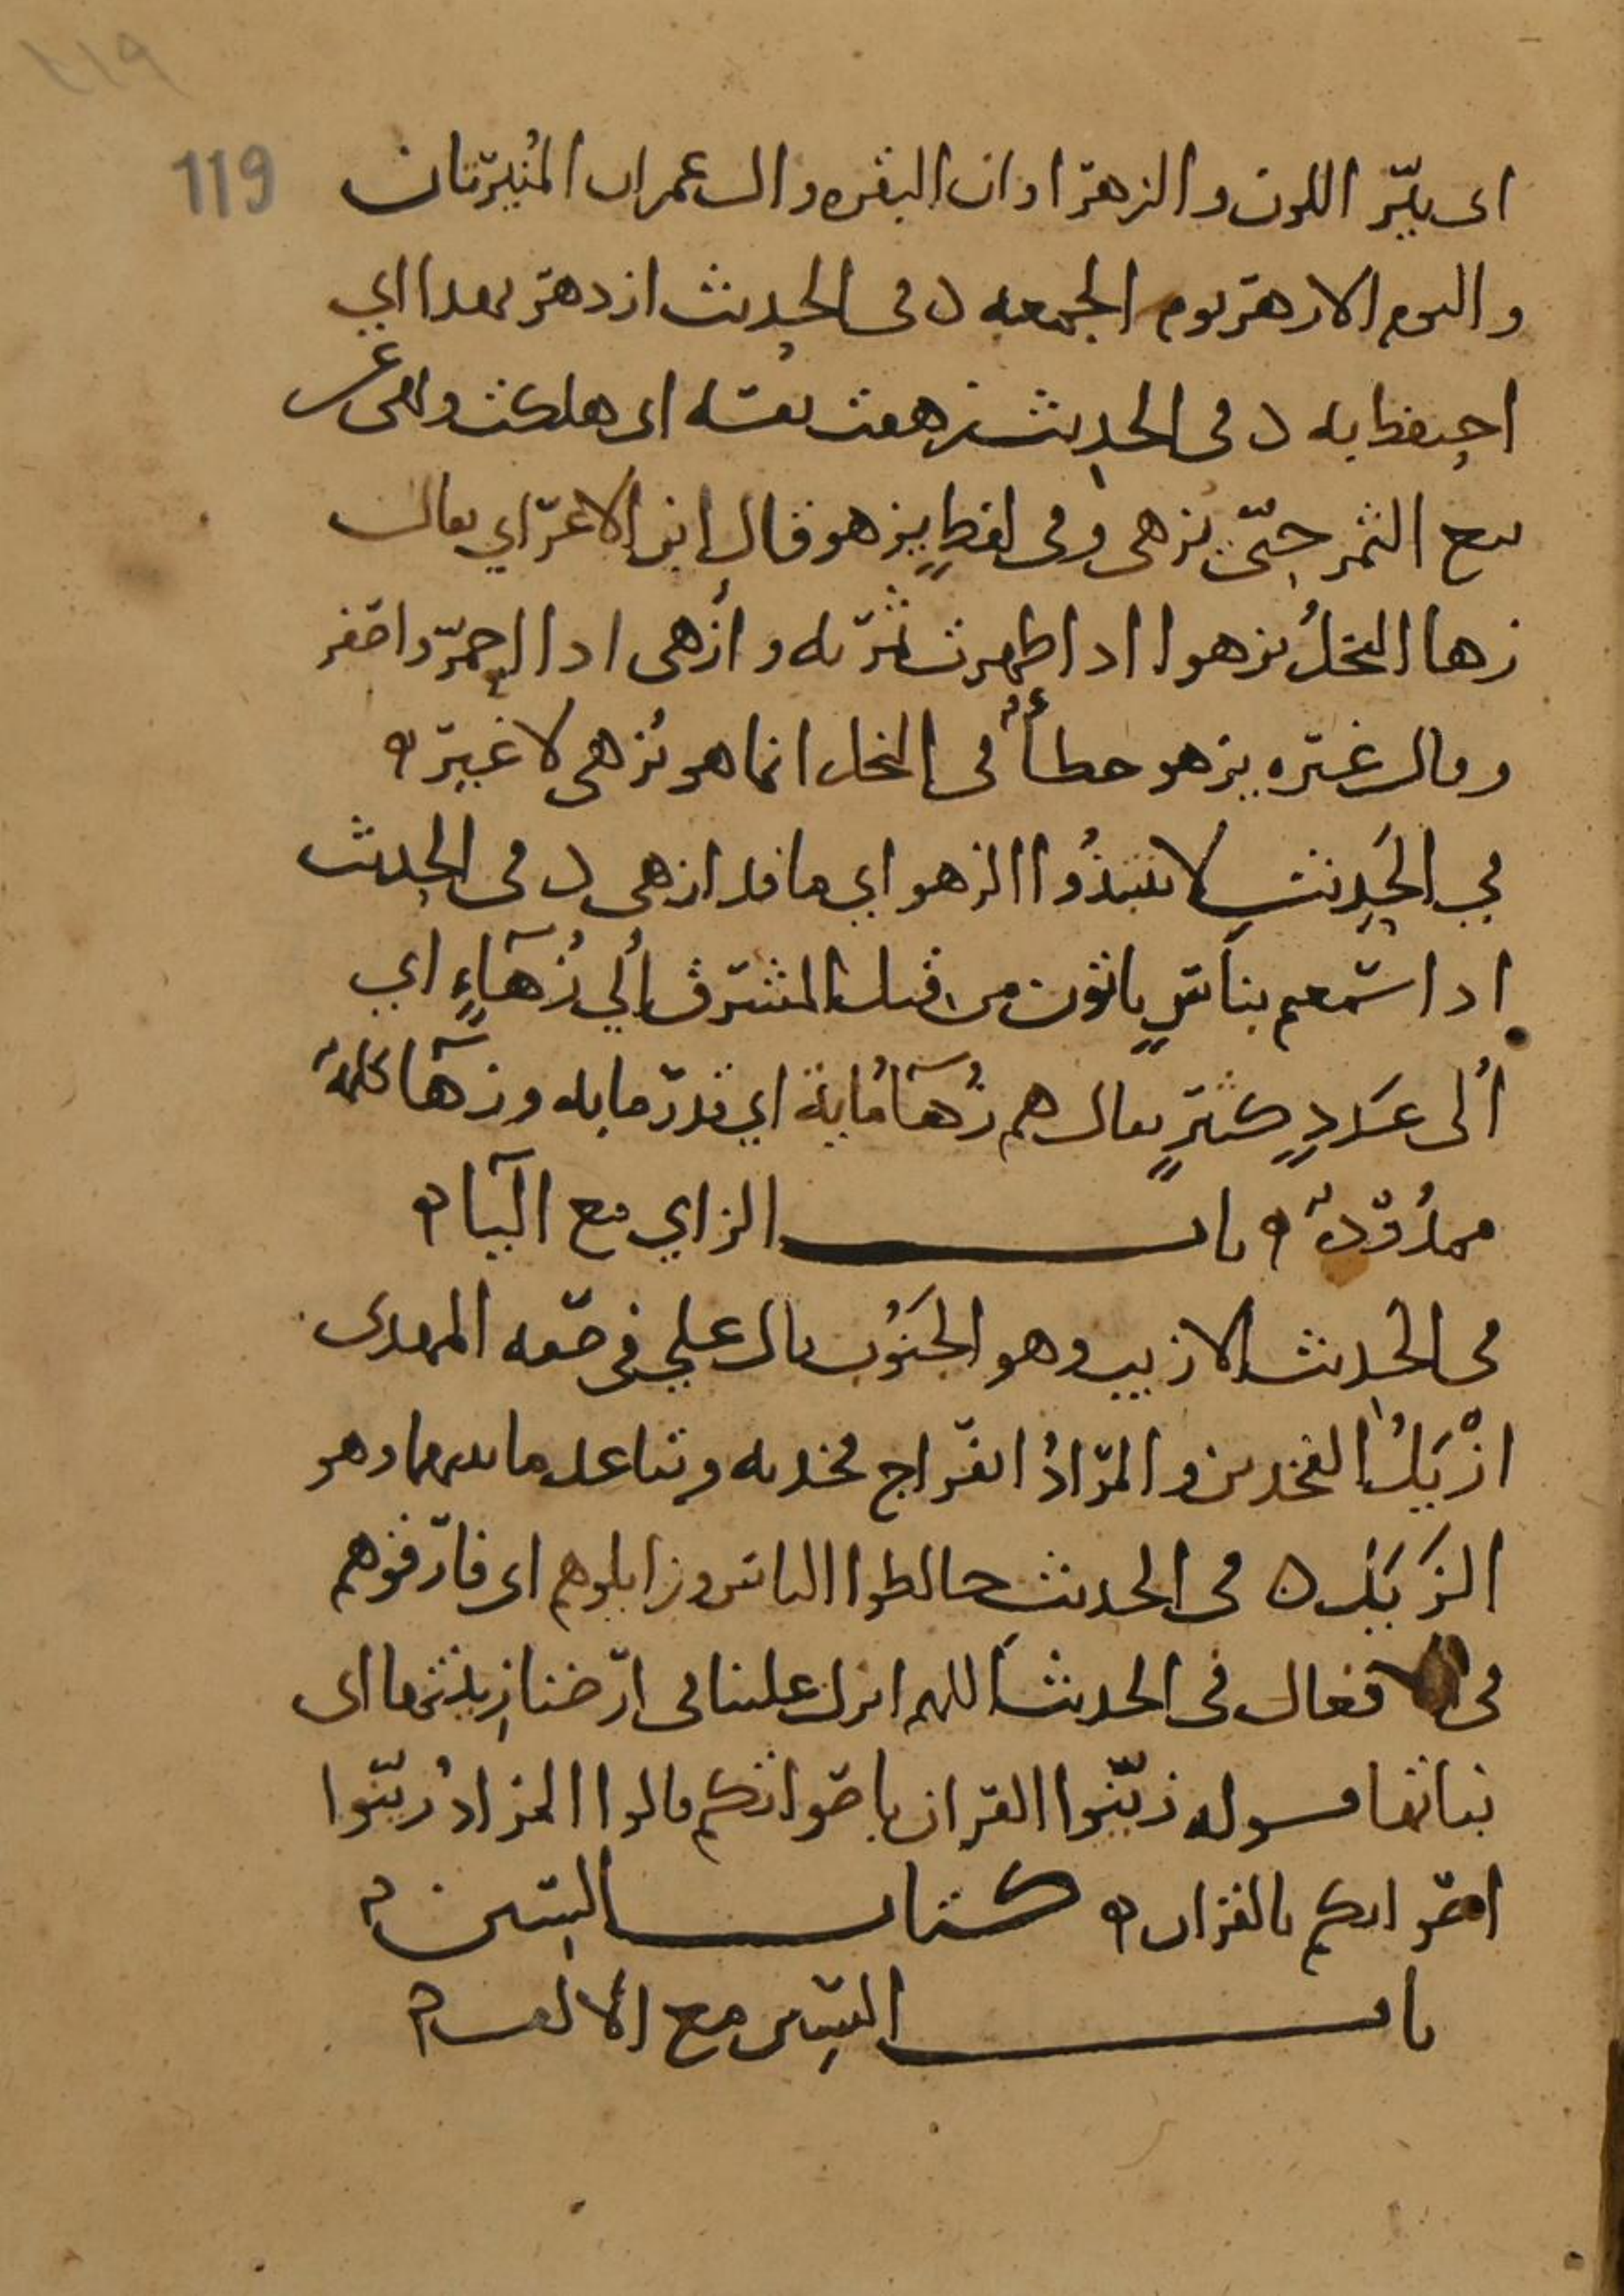 ١١٩
119
اى نيّر اللون والزهراوان البقره وال عمران المنيرتان
واليوم الازهر يوم الجمعه وفى الحديث ازدهر بهذا اي
احتفظ به وفى الحديث زهقت نفسه اى هلكت ونهى عن
بيع الثمر حتّى يزهى وفى لفظٍ يزهو قال ابن الاعرابي يقال
زها النخلُ يزهوا اذا ظهرت ثمرته وأزهى اذا احمرّ واصفر
وقال غيره يزهو خطأٌ فى النخل انما هو يُزهى لا غير ه
في الحديث لا تنتبذُوا الزهو اي ما قد ازهى وفى الحديث
اذا سمعتم بناسٍ ياتون من قبل المشرق أُلي زُهآءٍ اي
أُلى عَددٍ كثيرٍ يقال هم زُهآ مُاية اي قدر مايه وزهآ كلمةٌ
ممدُودةٌ ه باب الزاي مع اليآ ه
فى الحديث الازيب وهو الجَنُوب قال علي فى صفه المهدى
ازْيَلُ الفخدين والمرادُ انفراج فخديه وتباعد ما بينهما وهو
الزَيَل ه فى الحديث خالطوا الناس وزايلوهم اى فارقوهم
فى افعال فى الحديث اللهم انزل علينا فى ارضنا زِينتها اى
نباتها قوله زيّنوا القران باصواتكم قالوا المراد زيّنوا
اصواتكم بالقران ه كتاب السين ه
باب السين مع الالف ه